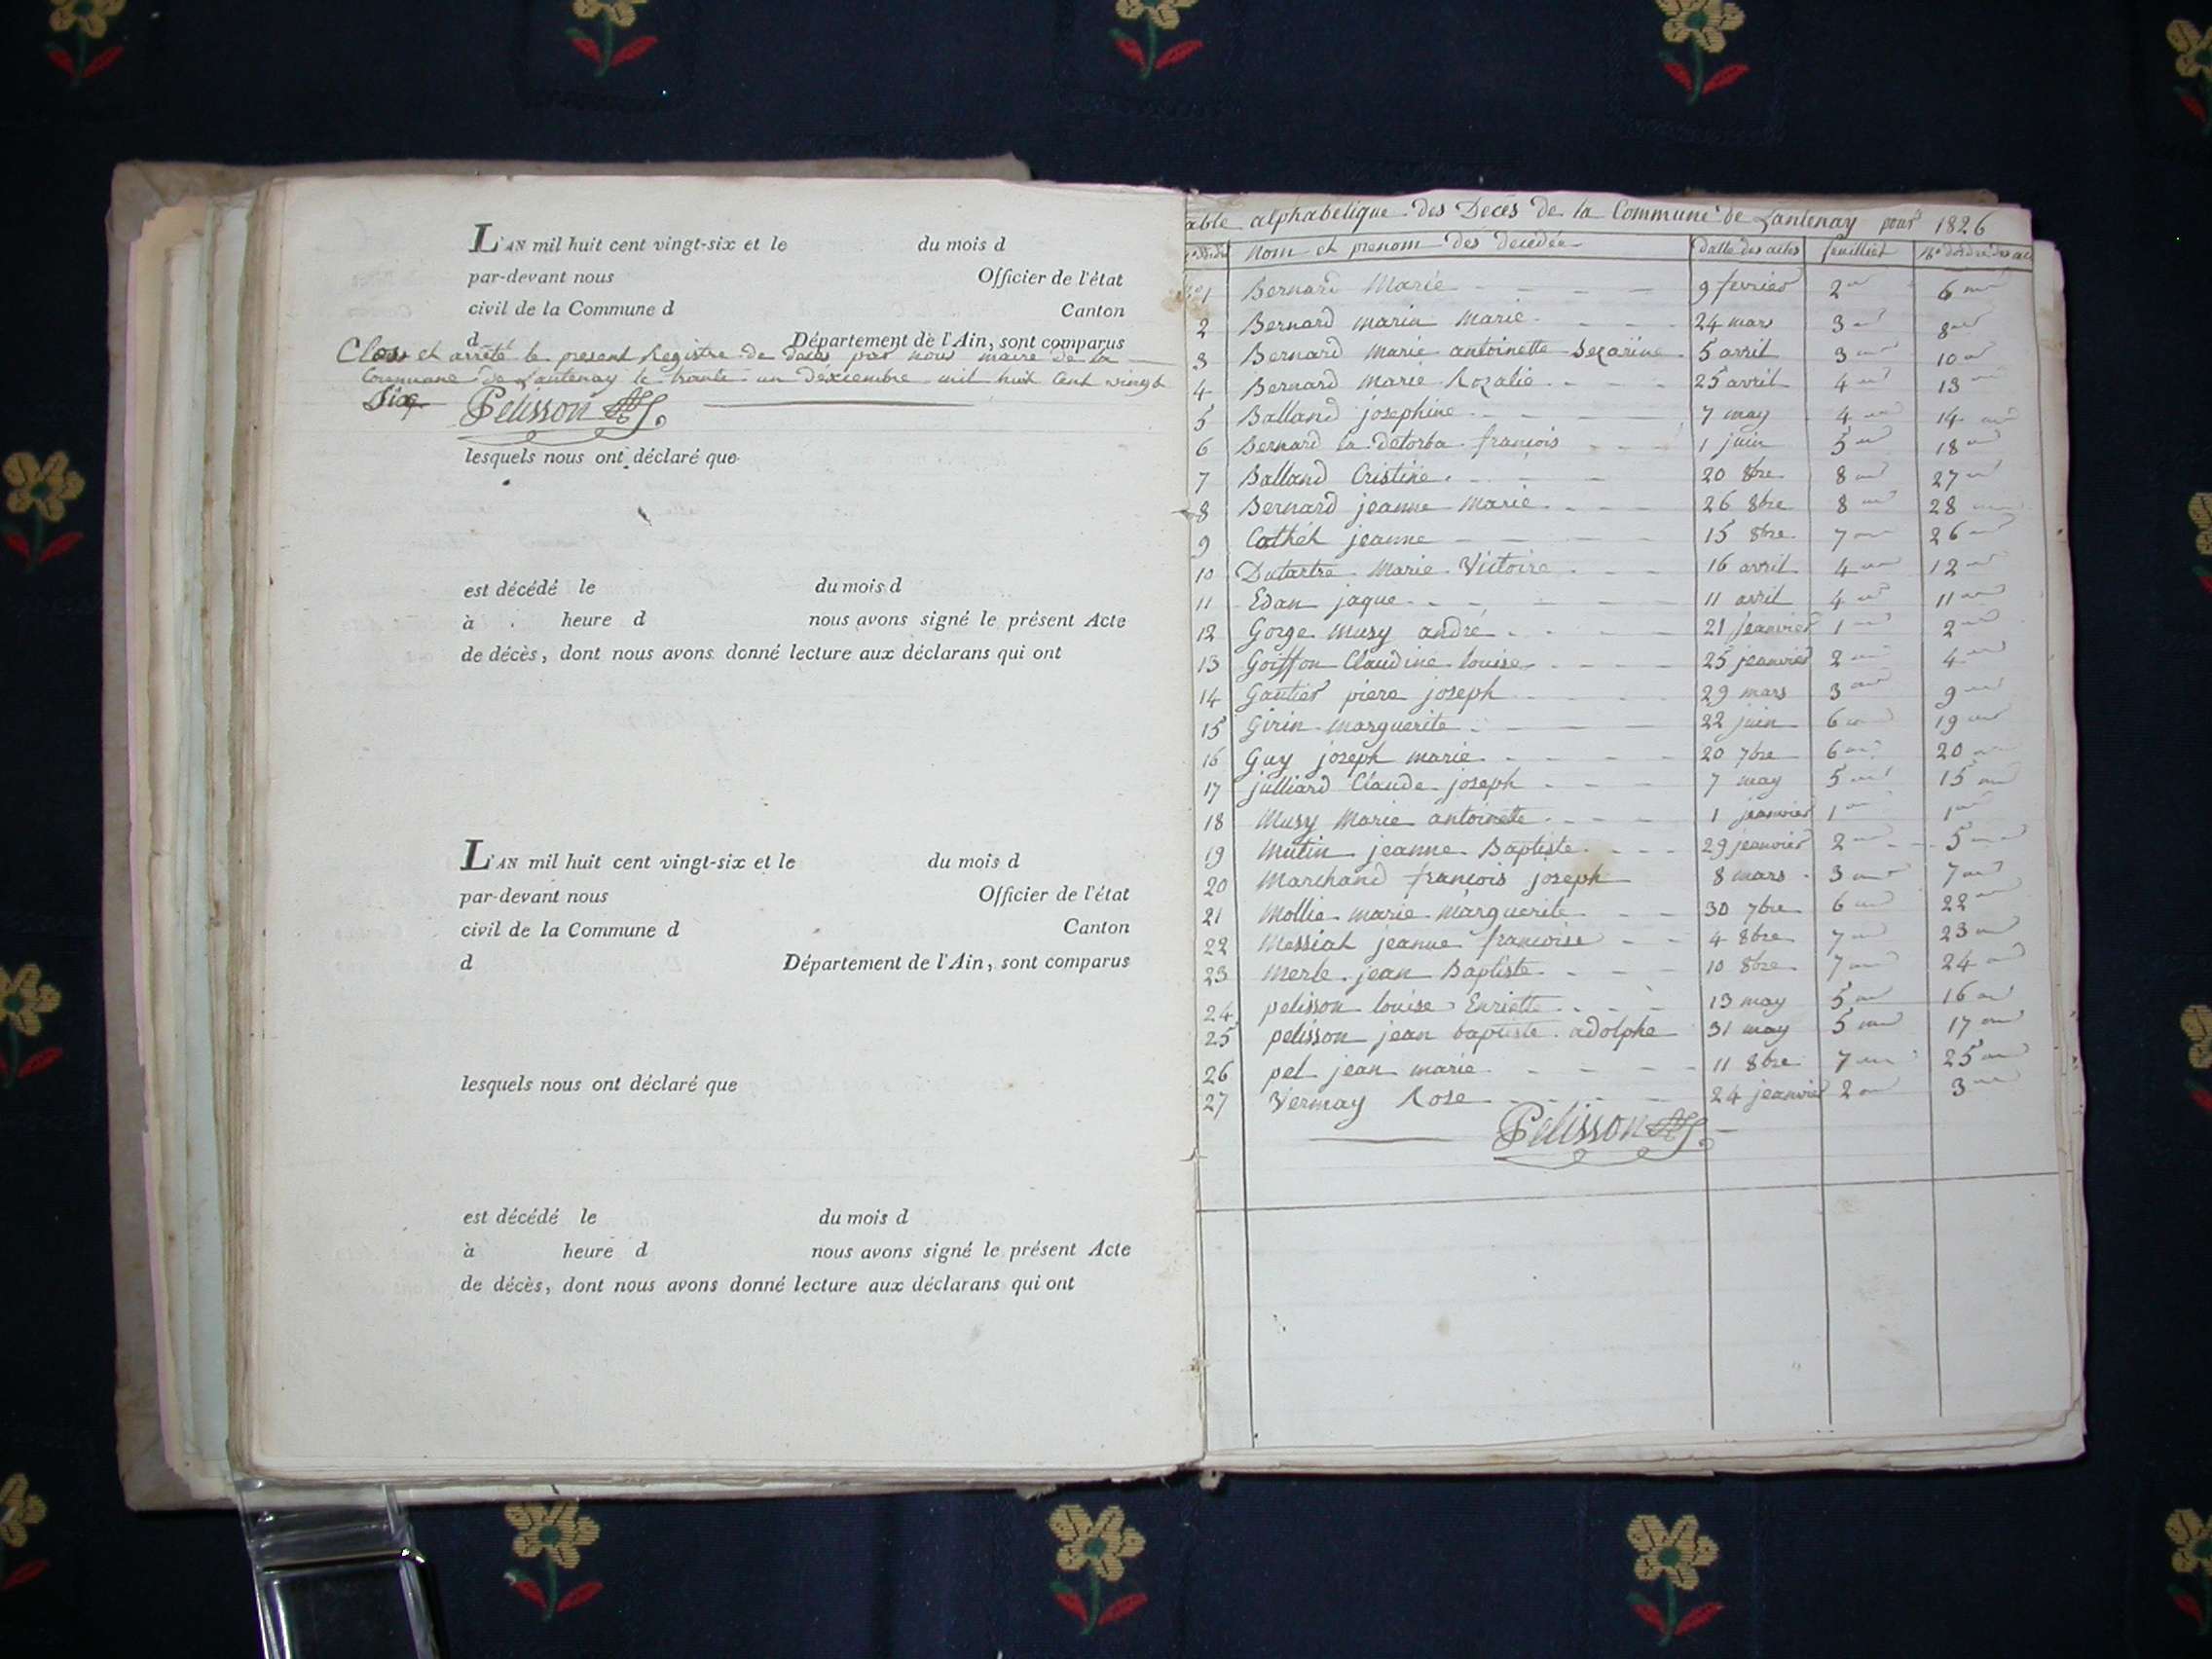 L'AN mil huit cent vingt-six et le du mois d
par-devant nous Officier de l'état
civil de la Commune d Canton
d Département de l'Ain, sont comparus
Clos et arrêté le present Registre de décès par nous maire de la
Commune de Lantenay le trente un déxiembre mil huit Cent vingt
Six Pelisson
lesquels nous ont déclaré que
est décédé le du mois d
à heure d nous avons signé le présent Acte
de décès, dont nous avons donné lecture aux déclarans qui ont
L'AN mil huit cent vingt-six et le du mois d
par-devant nous Officier de l'état
civil de la Commune d Canton
d Département de l'Ain, sont comparus
lesquels nous ont déclaré que
est décédé le du mois d
à heure d nous avons signé le présent Acte
de décès, dont nous avons donné lecture aux déclarans qui ont
able alphabetique des Decès de la Commune de Lantenay pour 1826
Nom et prenom des decedée datte des actes feuillet N° dordre des ac
N° 1 Bernard Marie 9 fevrier 2 6
2 Bernard marin Marie 24 mars 3 8
3 Bernard Marie antoinette Sezarine 5 avril 3 10
4 Bernard Marie Rozalie 25 avril 4 13
5 Balland josephine 7 may 4 14
6 Bernard la detorba francois 1 juin 5 18
7 Balland Cristine 20 8bre 8 27
8 Bernard jeanne Marie 26 8bre 8 28
9 Cathék jeanne 15 8bre 7 26
10 Dutartre Marie Victoire 16 avril 4 12
11 Edan jaque 11 avril 4 11
12 Gorge Musy andré 21 jeanvier 1 2
13 Goiffon Claudine louise 25 jeanvier 2 4
14 Gautier piere joseph 29 mars 3 9
15 Girin Marguerite 22 juin 6 19
16 Guy joseph marie 20 7bre 6 20
17 julliard Claude joseph 7 may 5 15
18 Musy Marie antoinette 1 jeanvier 1 1
19 Mutin jeanne Baptiste 29 jeanvier 2 5
20 Marchand francois joseph 8 mars 3 7
21 Mollie marie Marguerite 30 7bre 6 22
22 Messiat jeanne francoise 4 8bre 7 23
23 Merle jean Baptiste 10 8bre 7 24
24 pelisson louise Enriette 13 may 5 16
25 pelisson jean baptiste adolphe 31 may 5 17
26 pel jean marie 11 8bre 7 25
27 Vermay Rose 24 jeanvier 2 3
Pelisson